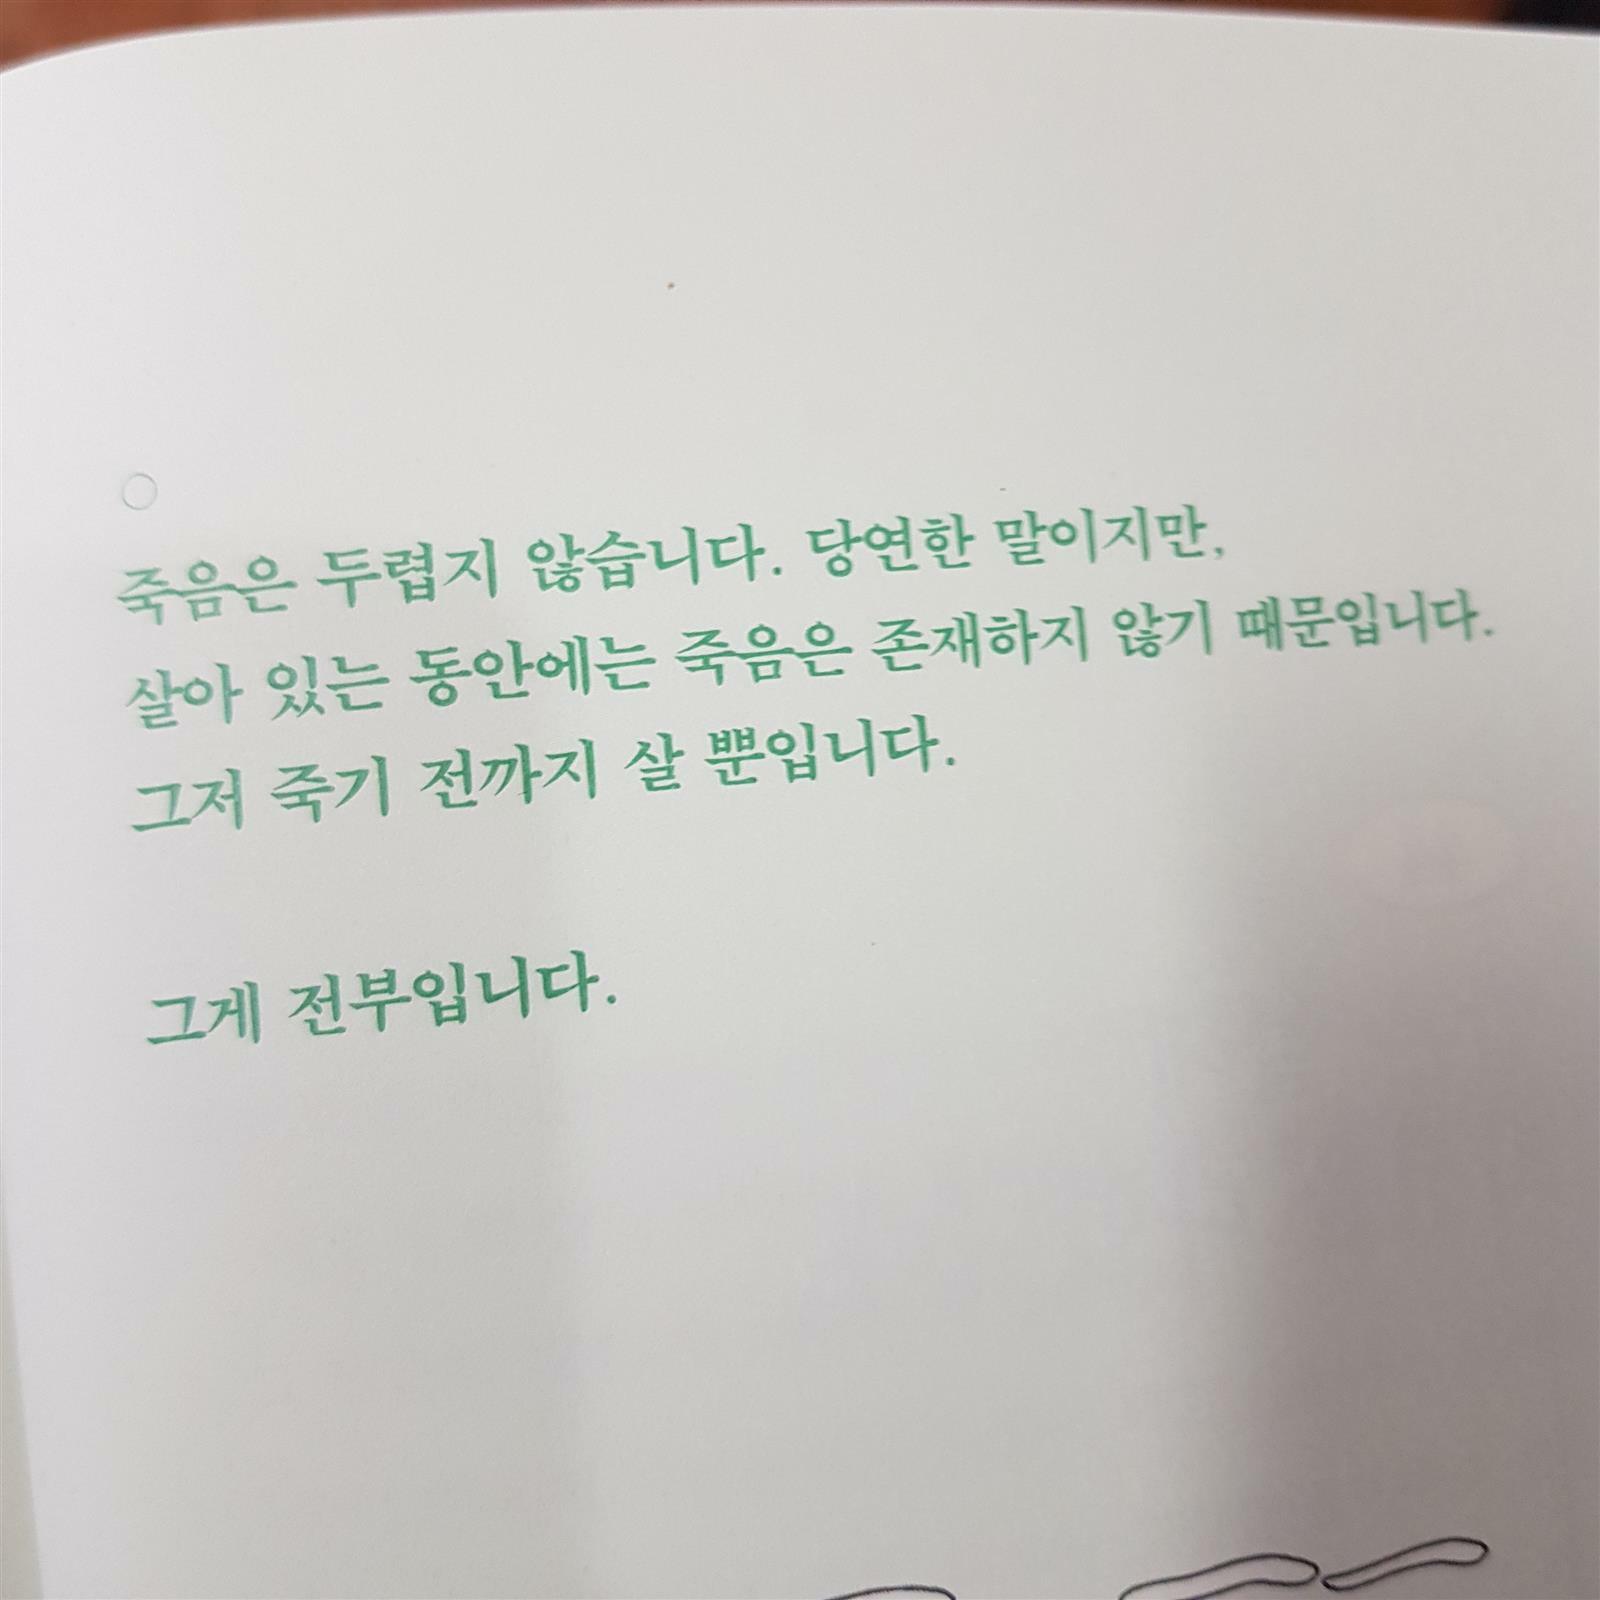 죽음은 두렵지 않습니다. 당연한 말이지만,
살아 있는 동안에는 죽음은 존재하지 않기 때문입니다.
그저 죽기 전까지 살 뿐입니다.
그게 전부입니다.